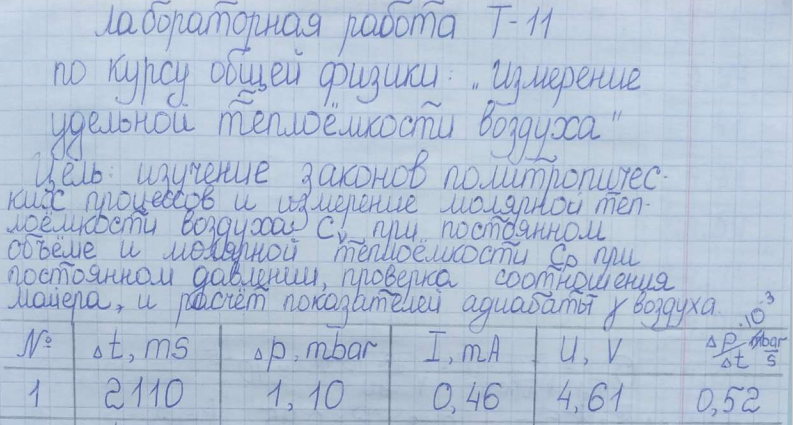 лабораторная работа Т-11
по курсу общей физики: „Измерение
удельной теплоёмкости воздуха"
Цель: изучение законов политропичес-
ких процессов и измерение молярной теп-
лоёмкости воздуха Cv при постоянном
объёме и молярной теплоёмкости Cp при
постоянном давлении, проверка соотношения
Майера, и расчёт показателей адиабаты γ воздуха.
№ Δt, ms Δp, mbar I, mA U, V Δp/Δt, mbar/s ·10⁻³
1 2110 1,10 0,46 4,61 0,52